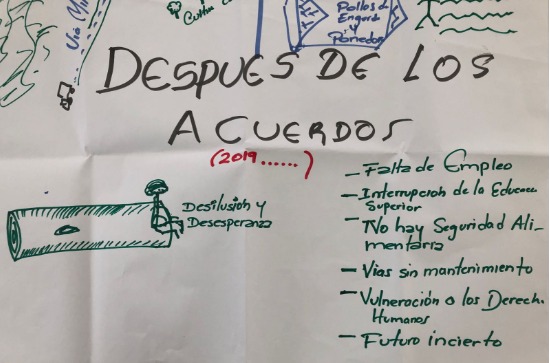 Pollos de
Engord
y
DESPUES DE LOS
ACUERDOS
(2019......)
Desilusión y
Desesperanza
- Falta de Empleo
- Interrupcion de la Educac
Superior
- No hay Seguridad Ali-
mentaria
- Vias sin mantenimiento
- Vulneración a los Derech.
Humanos
- Futuro incierto